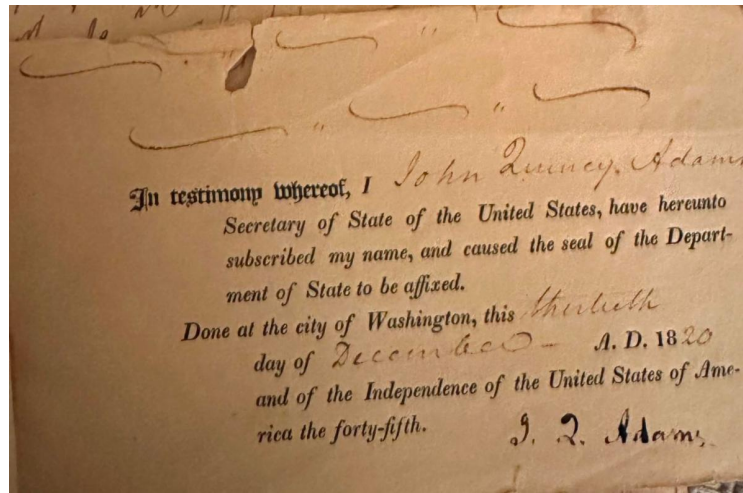 In testimony whereof, I John Quincy Adams
Secretary of State of the United States, have hereunto
subscribed my name, and caused the seal of the Depart-
ment of State to be affixed.
Done at the city of Washington, this thirtieth
day of December A. D. 1820
and of the Independence of the United States of Ame-
rica the forty-fifth.
J. Q. Adams.